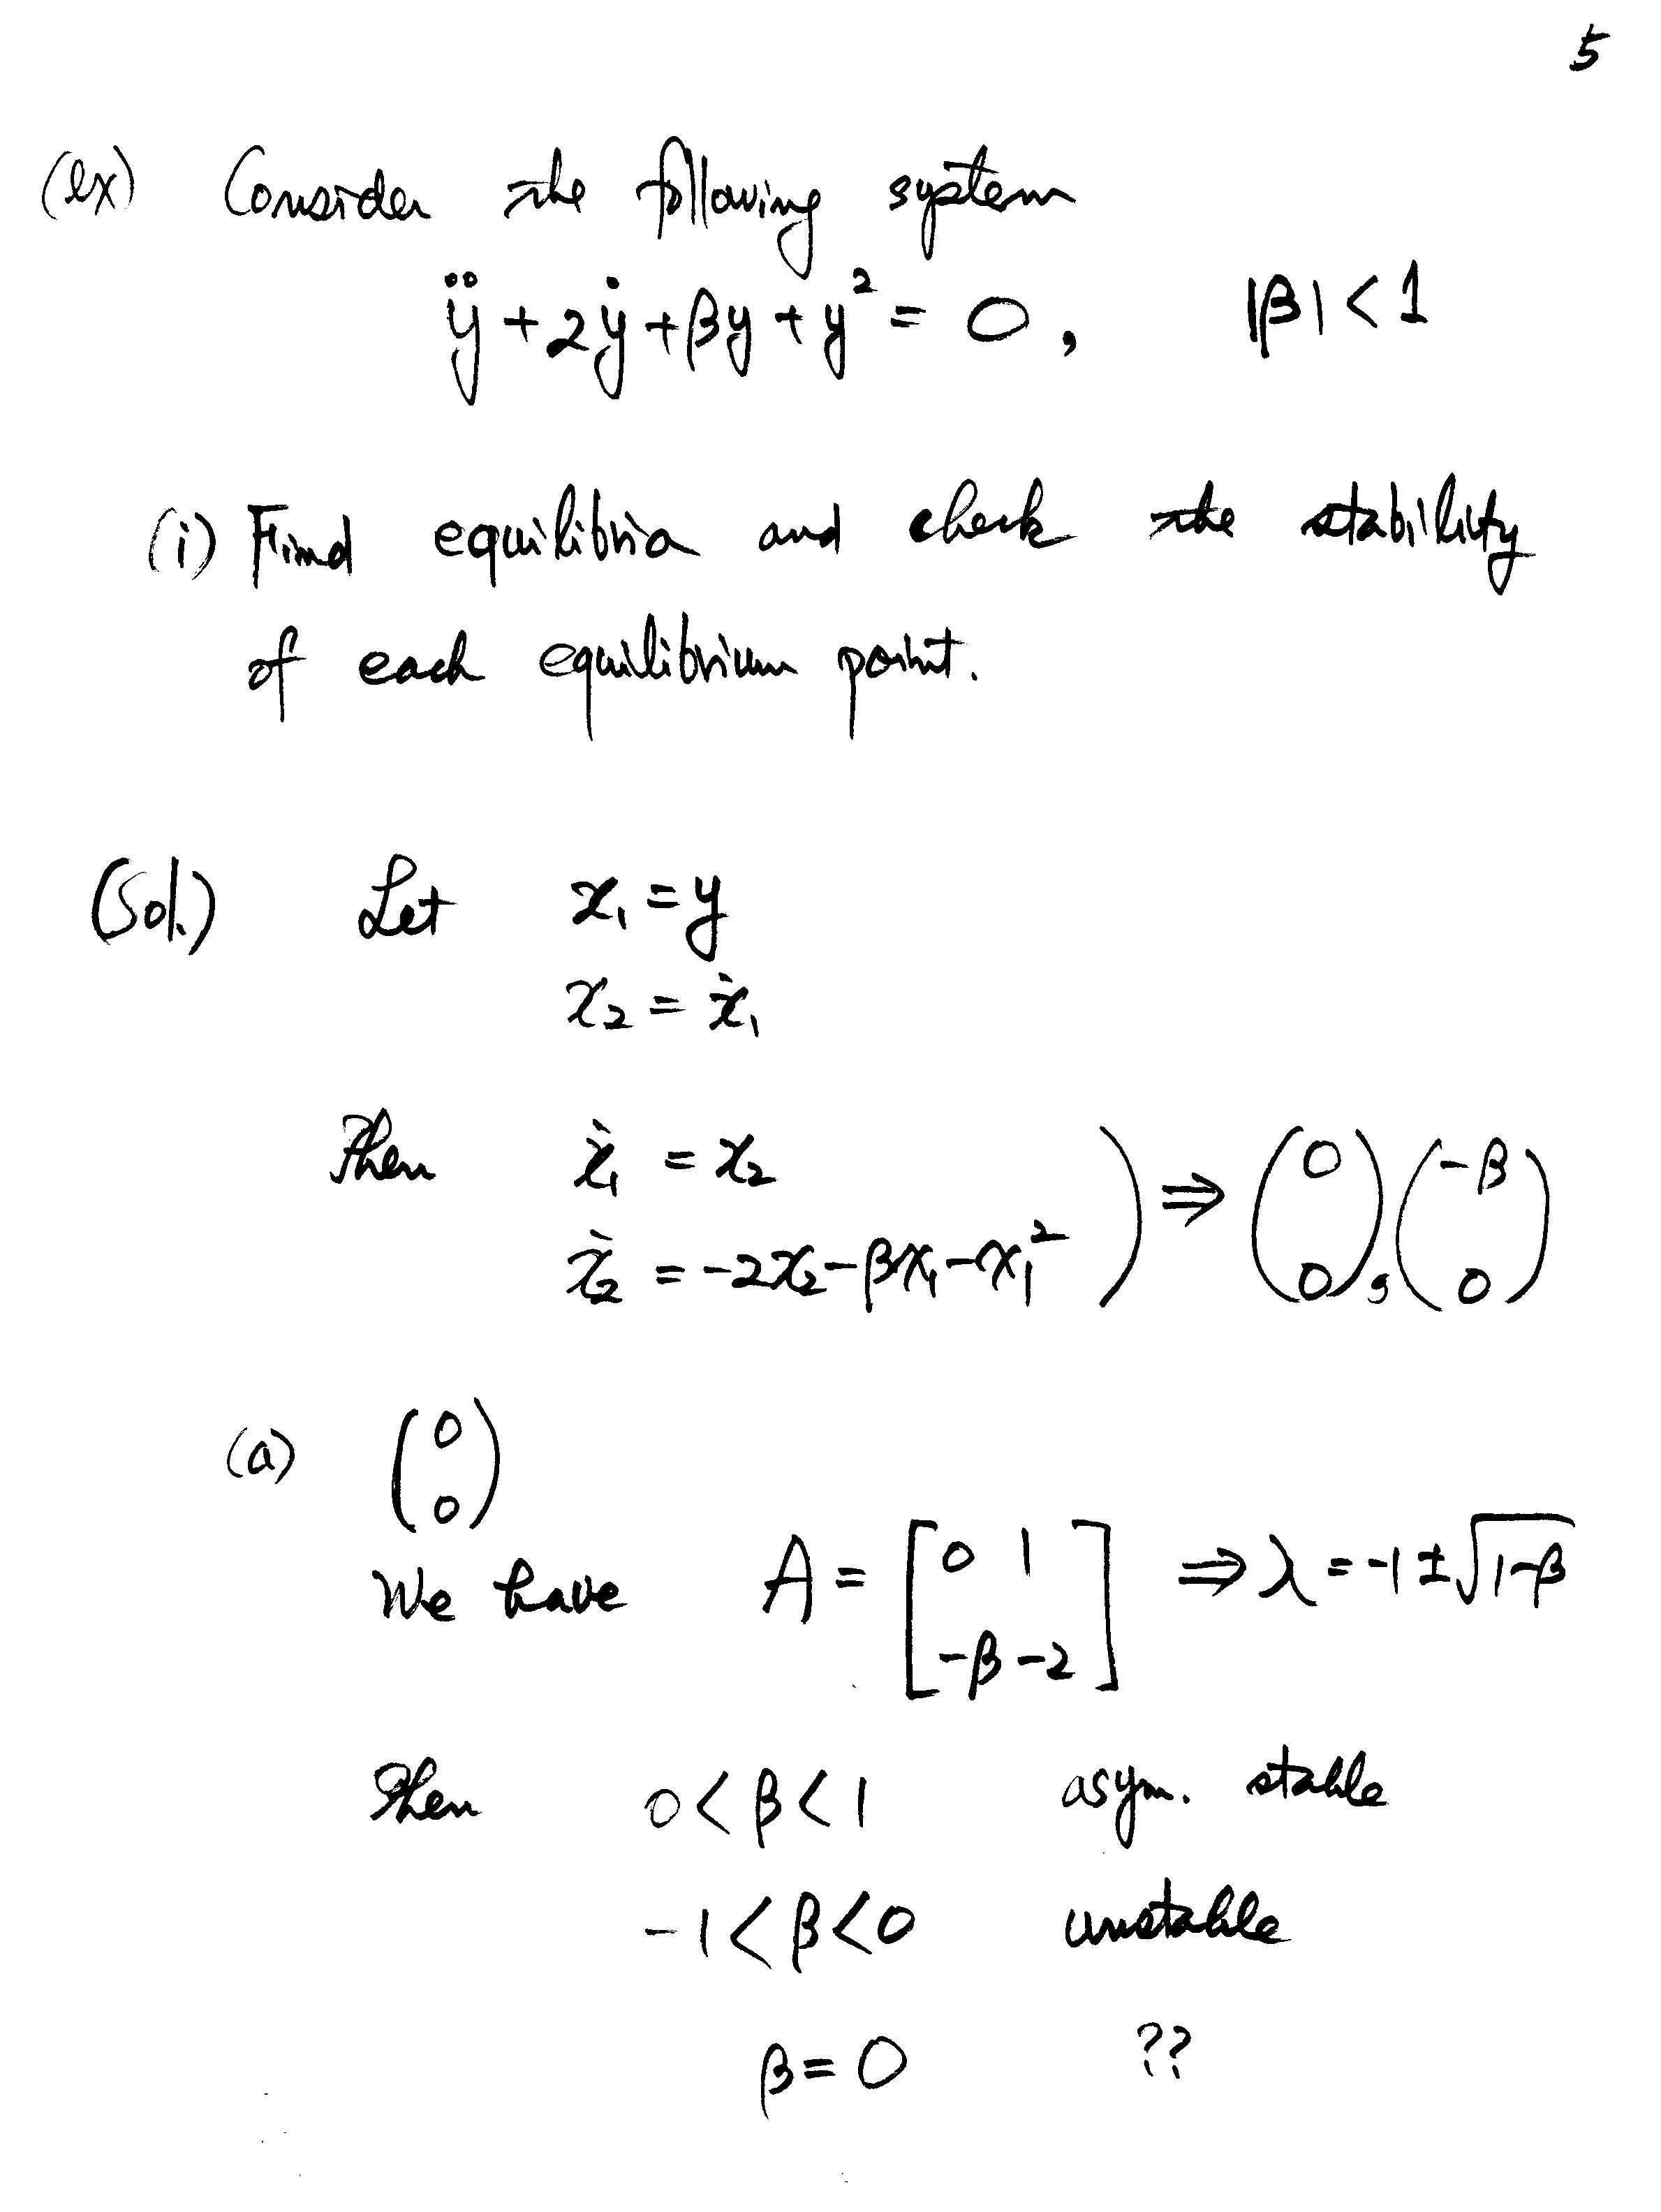 5
(ex) Consider the following system
ÿ + 2ẏ + βy + y² = 0, |β| < 1
(i) Find equilibria and check the stability
of each equilibrium point.
(Sol.) Let x₁ = y
x₂ = ẋ₁
Then ẋ₁ = x₂
ẋ₂ = -2x₂ - βx₁ - x₁² ) ⇒ (0 0), (-β 0)
(a) (0 0)
We have A = [0 1 -β -2] ⇒ λ = -1 ± √(1-β)
Then 0 < β < 1 asym. stable
-1 < β < 0 unstable
β = 0 ??